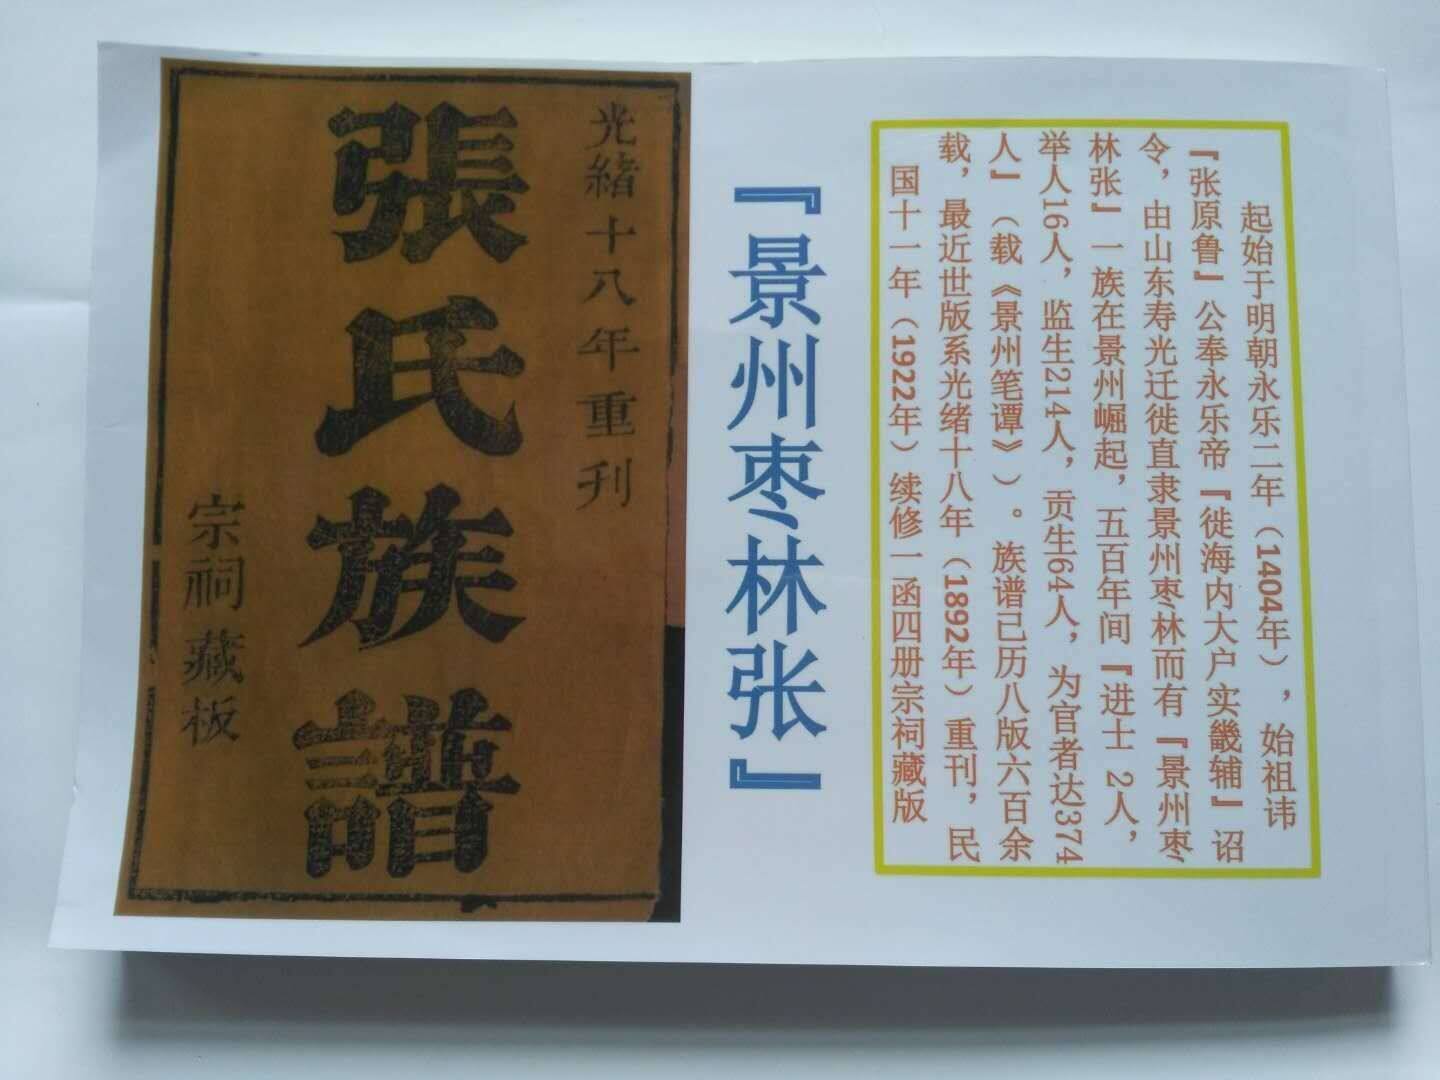 起始于明朝永乐二年（1404年），始祖讳
『张原鲁』公奉永乐帝『徙海内大户实畿辅』诏
令，由山东寿光迁徙直隶景州枣林而有『景州枣
林张』一族在景州崛起，五百年间『进士 2人，
举人16人，监生214人，贡生64人，为官者达374
人』（载《景州笔谭》）。族谱已历八版六百余
载，最近世版系光绪十八年（1892年）重刊，民
国十一年（1922年）续修一函四册宗祠藏版
『景州枣林张』
光緒十八年重刊
張氏族譜
宗祠藏板